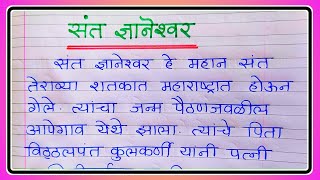 संत ज्ञानेश्वर
संत ज्ञानेश्वर हे महान संत
तेराव्या शतकात महाराष्ट्रात होऊन
गेले. त्यांचा जन्म पैठणजवळील
आपेगाव येथे झाला. त्यांचे पिता
विठ्ठलपंत कुलकर्णी यांनी पत्नी